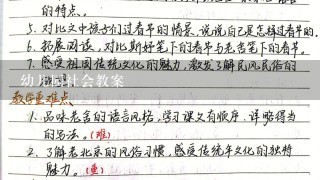 的特点。
5. 对比文中孩子们过春节的情景,说说自己是怎样过春节的。
6. 拓展阅读,对比斯妤笔下的春节与老舍笔下的春节。
7. 感受祖国传统文化的魅力,激发了解民风民俗的
幼儿园社会教案
教学重难点
1. 品味老舍的语言风格,学习课文有顺序、详略得当
的写法。(难)
2. 了解老北京的风俗习惯,感受传统年文化的独特
魅力。(重)